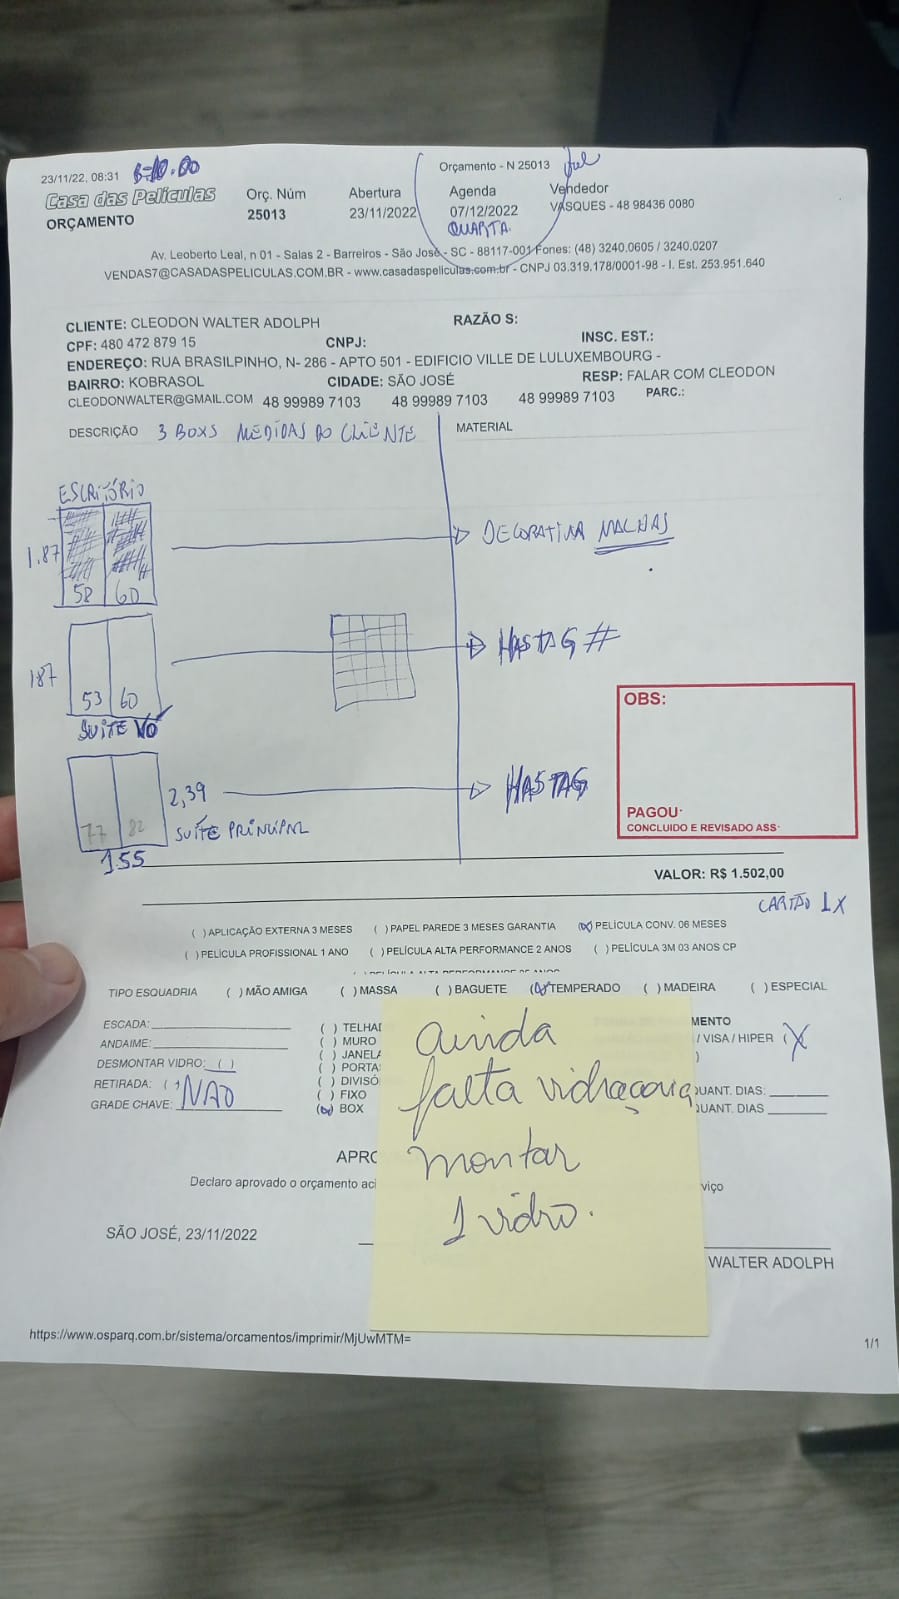 23/11/22, 08:31
Orçamento - N 25013
Casa das Películas
ORÇAMENTO
Orç. Núm
25013
Abertura
23/11/2022
Agenda
07/12/2022
QUARTA
Vendedor
VASQUES - 48 98436 0080
Av. Leoberto Leal, n 01 - Salas 2 - Barreiros - São José - SC - 88117-001 Fones: (48) 3240.0605 / 3240.0207
VENDAS7@CASADASPELICULAS.COM.BR - www.casadaspeliculas.com.br - CNPJ 03.319.178/0001-98 - I. Est. 253.951.640
CLIENTE: CLEODON WALTER ADOLPH RAZÃO S:
CPF: 480 472 879 15 CNPJ: INSC. EST.:
ENDEREÇO: RUA BRASILPINHO, N- 286 - APTO 501 - EDIFICIO VILLE DE LULUXEMBOURG -
BAIRRO: KOBRASOL CIDADE: SÃO JOSÉ RESP: FALAR COM CLEODON
CLEODONWALTER@GMAIL.COM 48 99989 7103 48 99989 7103 48 99989 7103 PARC.:
DESCRIÇÃO 3 BOXS MEDIDAS DO CLIENTE MATERIAL
ESCRITÓRIO
1.87 58 60 DECORATIVA MALHAS
187 53 60 HASTAG #
SUITE VÓ
77 82 2,39 HASTAG
SUÍTE PRINCIPAL
155
OBS:
PAGOU:
CONCLUIDO E REVISADO ASS:
VALOR: R$ 1.502,00
CARTÃO 1X
( ) APLICAÇÃO EXTERNA 3 MESES ( ) PAPEL PAREDE 3 MESES GARANTIA (X) PELÍCULA CONV. 06 MESES
( ) PELÍCULA PROFISSIONAL 1 ANO ( ) PELÍCULA ALTA PERFORMANCE 2 ANOS ( ) PELÍCULA 3M 03 ANOS CP
TIPO ESQUADRIA ( ) MÃO AMIGA ( ) MASSA ( ) BAGUETE (X) TEMPERADO ( ) MADEIRA ( ) ESPECIAL
ESCADA:
ANDAIME:
DESMONTAR VIDRO: ( )
RETIRADA: ( ) NÃO
GRADE CHAVE:
( ) TELHA
( ) MURO
( ) JANELA
( ) PORTA
( ) DIVISÓ
( ) FIXO
(X) BOX
MENTO
/ VISA / HIPER ( X
)
QUANT. DIAS:
QUANT. DIAS
ainda
falta vidraçaria
montar
1 vidro.
APRO
Declaro aprovado o orçamento aci
viço
SÃO JOSÉ, 23/11/2022
WALTER ADOLPH
https://www.osparq.com.br/sistema/orcamentos/imprimir/MjUwMTM=
1/1